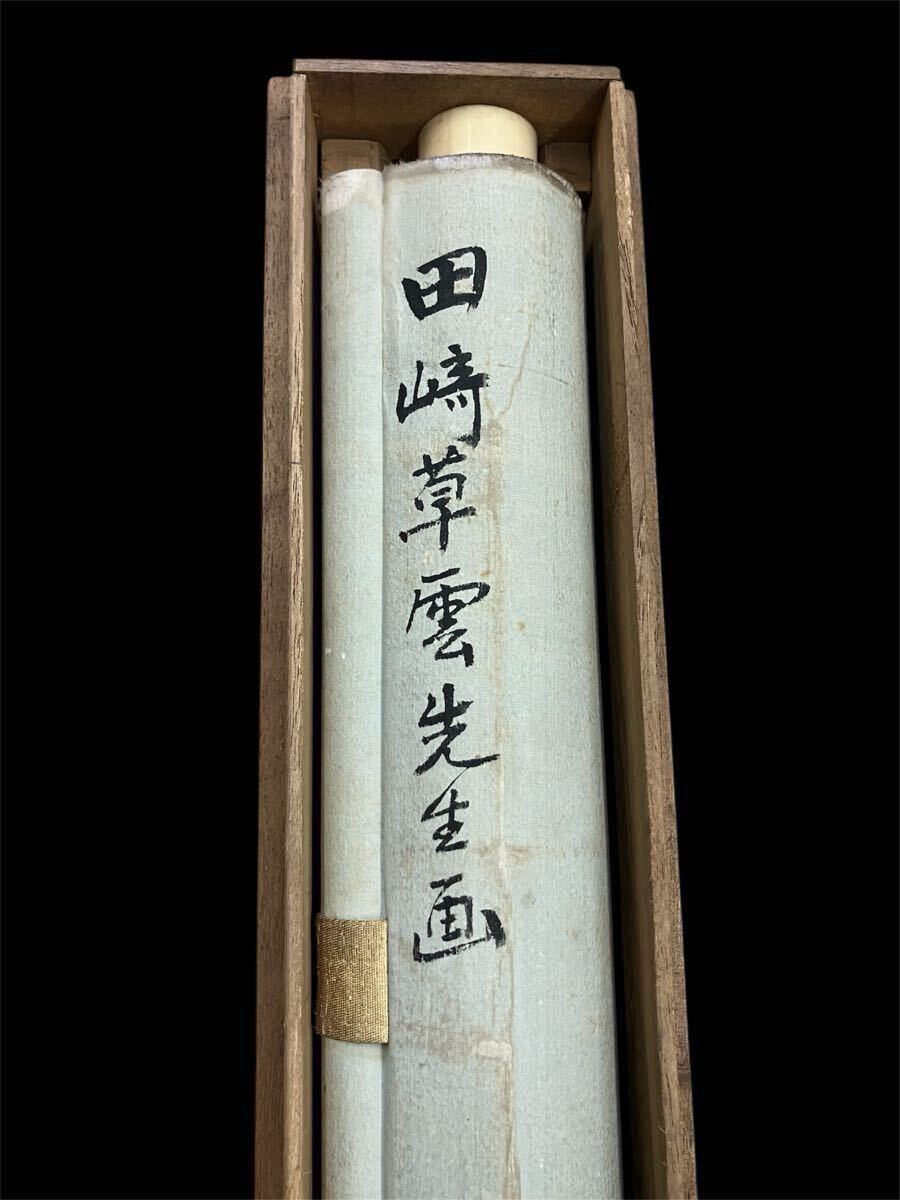 田崎草雲先生画